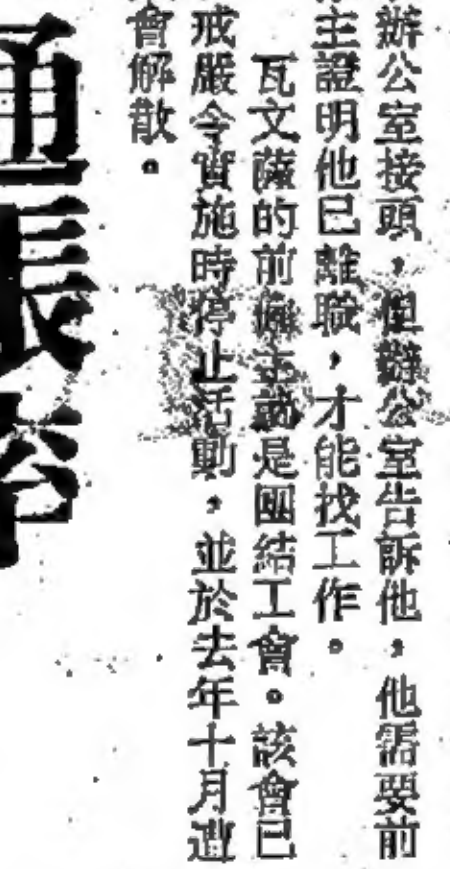 辦公室接頭，但辦公室告訴他，他需要前
主證明他已離職，才能找工作。
瓦文薩的前僱主就是團結工會。該會已
戒嚴令實施時停止活動，並於去年十月遭
會解散。
通脹率